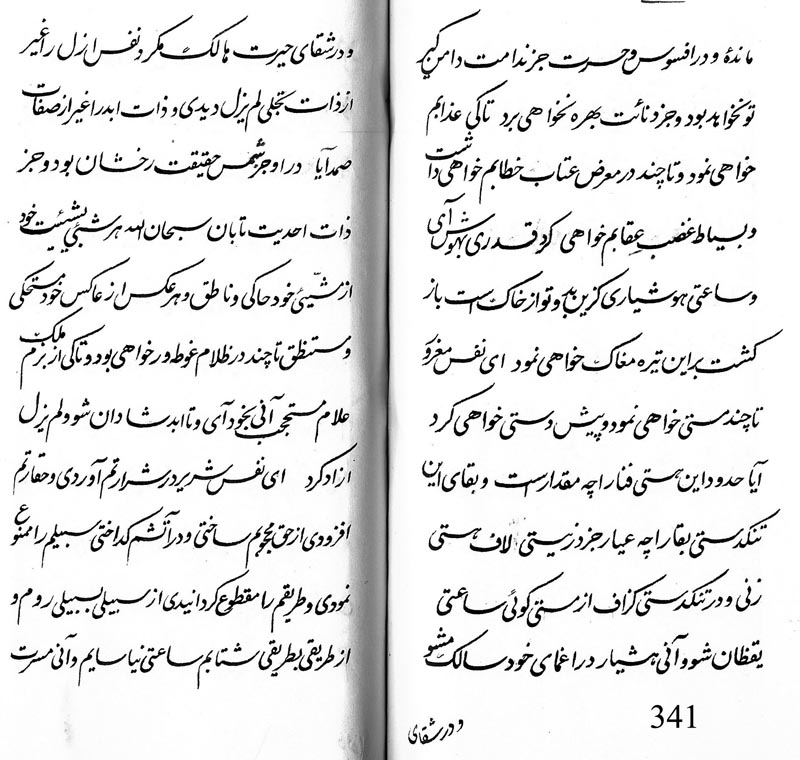 مانده‌ٔ و در افسوس و حسرت جز ندامت دامن گیر
تو نخواهد بود و جز دنائت بهره نخواهی برد تاکی عذابم
خواهی نمود و تا چند در معرض عتاب خطابم خواهی داشت
و بسیاط غضب عقابم خواهی کرد قدری بهوش آی
و ساعتی هوشیاری گزین بدو تو از خاک است باز
کشت بر این تیره مغاک خواهی نمود ای نفس مغرور
تا چند مستی خواهی نمود و پیش دستی خواهی کرد
آیا حدود این هستی فنا را چه مقدار است و بقای این
تنکدستی بقا را چه عیار جز در نیستی لاف هستی
زنی و در تنکدستی گزاف از مستی کوئی ساعتی
یقظان شو و آنی هشیار در اغمای خود سالک مشو
و در شقای
341
و در شقای حیرت هالک مکرد نفس ازل را غیر
از ذات تجلی لم یزل دیدی و ذات ابد را غیر از صفات
صمد آیا در او جز شمس حقیقت رخشان بود و جز
ذات احدیت تابان سبحان الله هر شیئی بشیئیت خود
از مشیّئ خود حاکی و ناطق و هر عکس از عاکس خود مستحکی
و مستنطق تا چند در ظلام غوطه ور خواهی بود و تاکی از بزم ملیک
علام محتجب آنی بخود آی و تا ابد شادان شو ولم یزل
ازاد کرد ای نفس شریر در شرارتم آوردی و حقارتم
افزودی از حق محجوبم ساختی و در آتشم کداختی سبیلم را ممنوع
نمودی و طریقم را مقطوع کردانیدی از سبیلی بسبیلی روم و
از طریقی بطریقی شتابم ساعتی نیاسایم و آنی مسرت